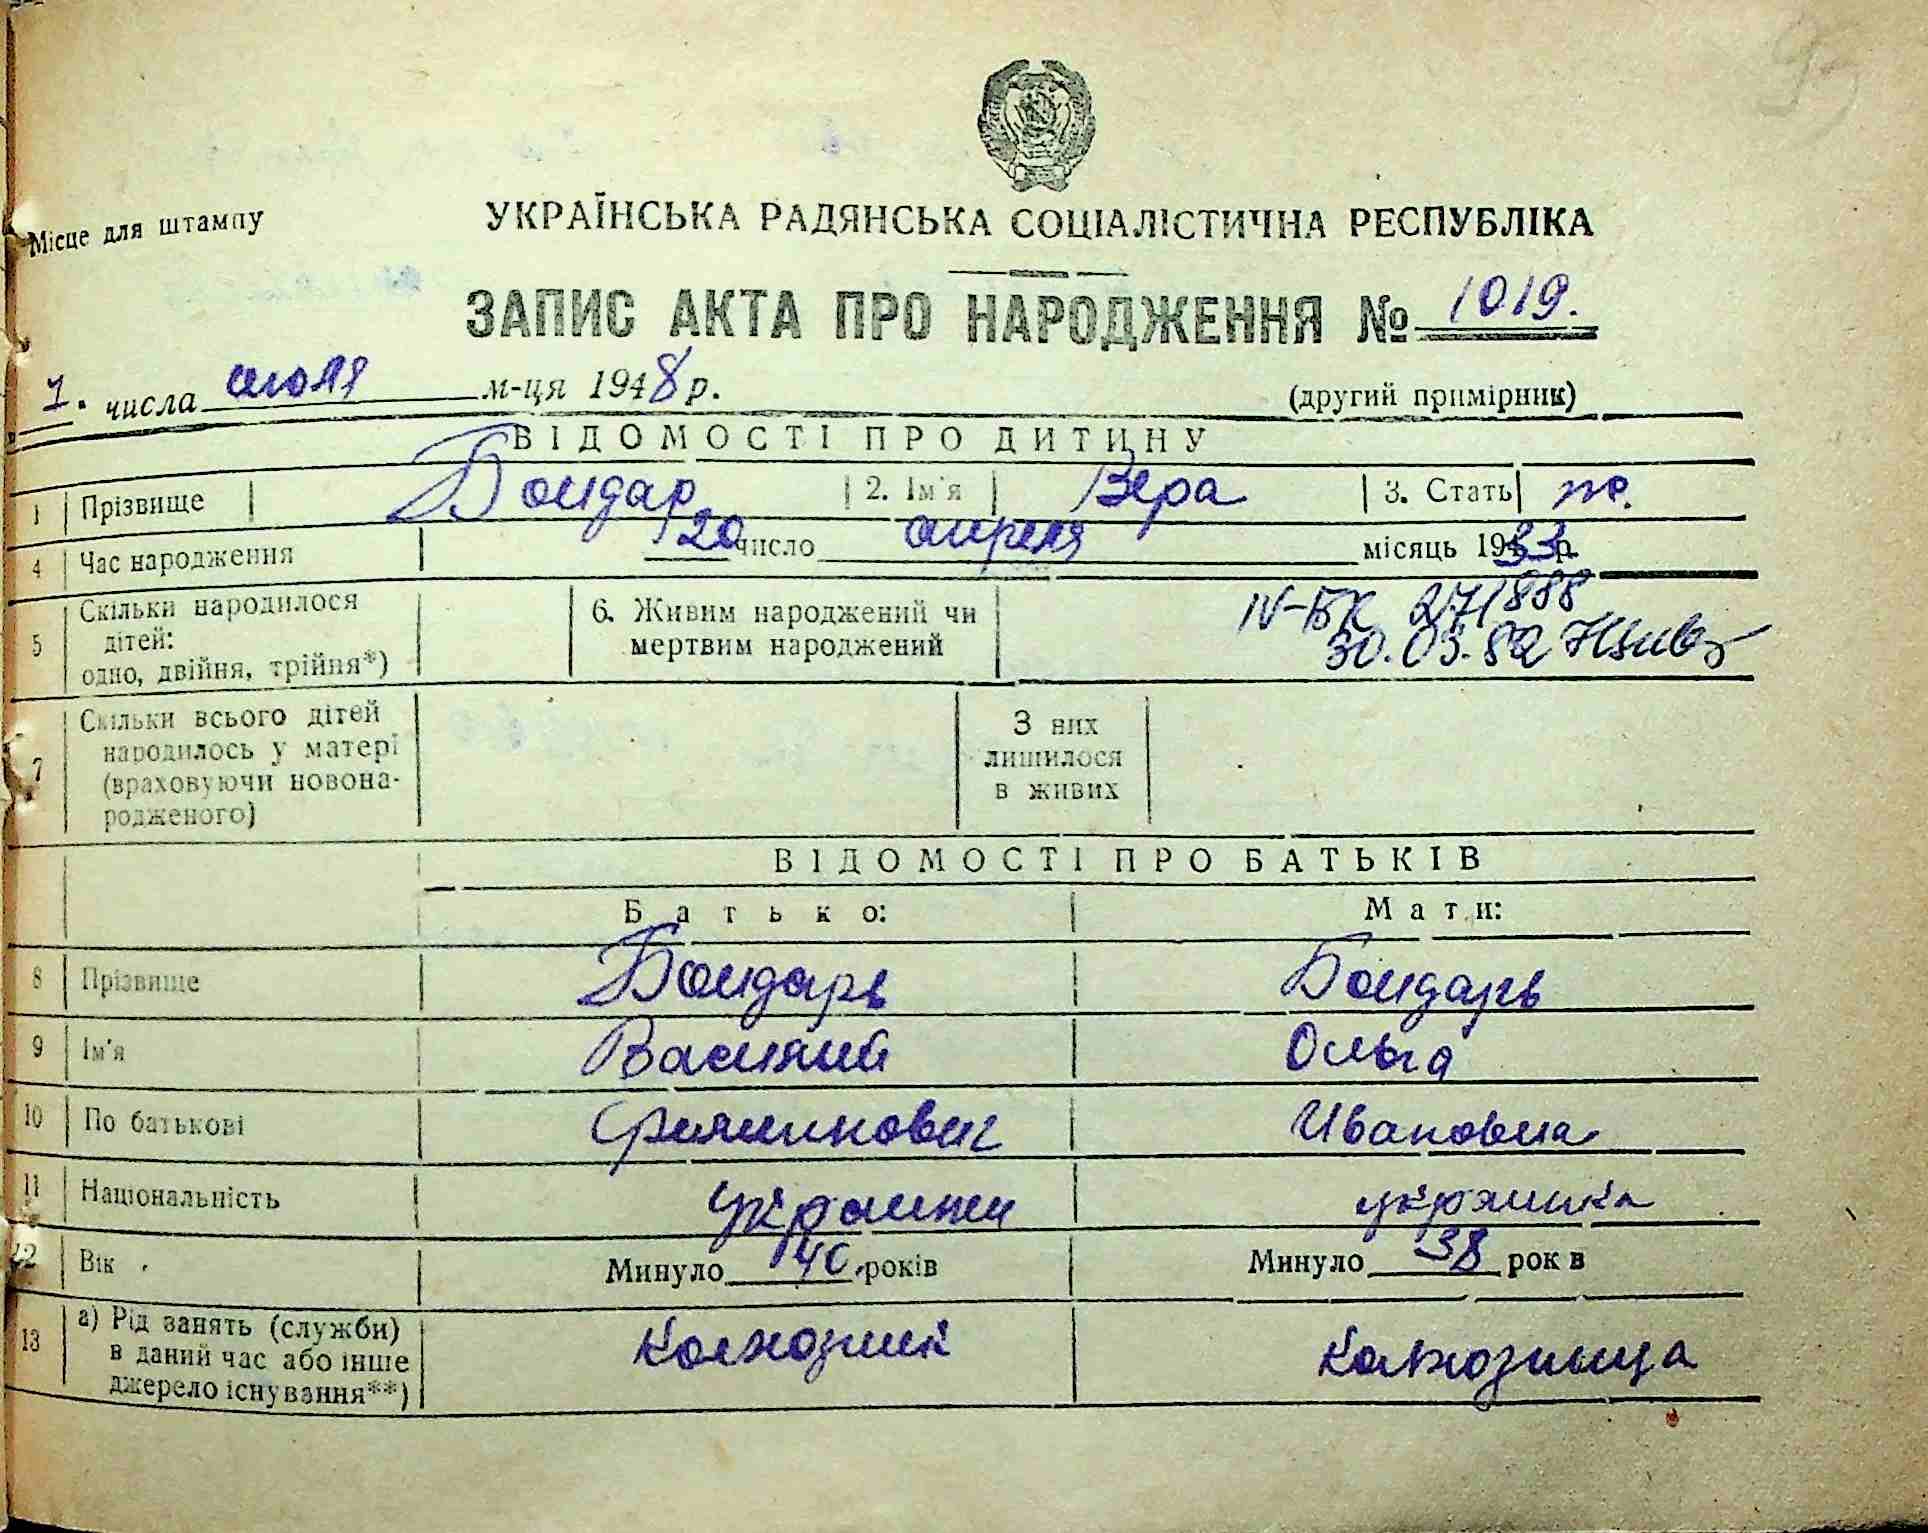 Місце для штампу
УКРАЇНСЬКА РАДЯНСЬКА СОЦІАЛІСТИЧНА РЕСПУБЛІКА
ЗАПИС АКТА ПРО НАРОДЖЕННЯ № 1019.
1. числа июля м-ця 1948 р.
(другий примірник)
ВІДОМОСТІ ПРО ДИТИНУ
1 Прізвище Бондар 2. Ім'я Вера 3. Стать ж.
4 Час народження 20 число апреля місяць 1933 р.
5 Скільки народилося дітей: одно, двійня, трійня*)
6. Живим народжений чи мертвим народжений
IV-БК 271888
30.03.82
7 Скільки всього дітей народилось у матері (враховуючи новонародженого)
З них лишилося в живих
ВІДОМОСТІ ПРО БАТЬКІВ
Батько: Мати:
8 Прізвище Бондарь Бондарь
9 Ім'я Василий Ольга
10 По батькові Филиппович Ивановна
11 Національність украинец украинка
12 Вік Минуло 40 років Минуло 38 років
13 а) Рід занять (служби) в даний час або інше джерело існування**) Колхозник Колхозница